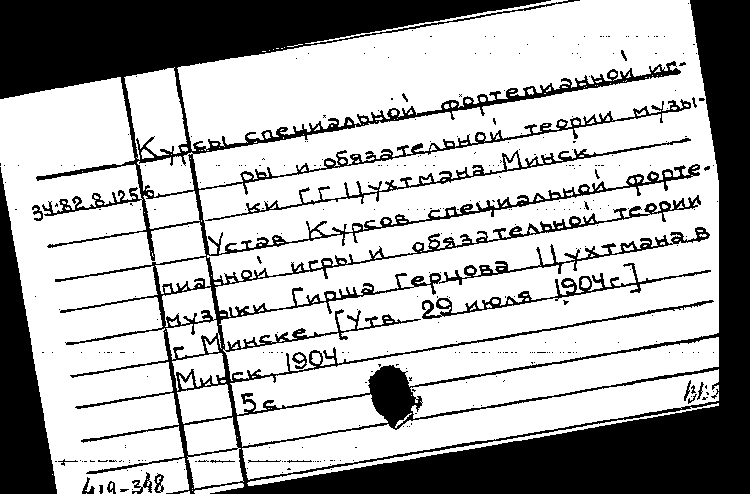 Курсы специальной фортепианной иг-
ры и обязательной теории музы-
34:82.8.1256.
ки Г.Г. Цухтмана. Минск.
Устав Курсов специальной форте-
пианной игры и обязательной теории
музыки Гирша Герцова Цухтмана в
г. Минске. [Утв. 29 июля 1904г.].
Минск, 1904.
5 с.
419-348